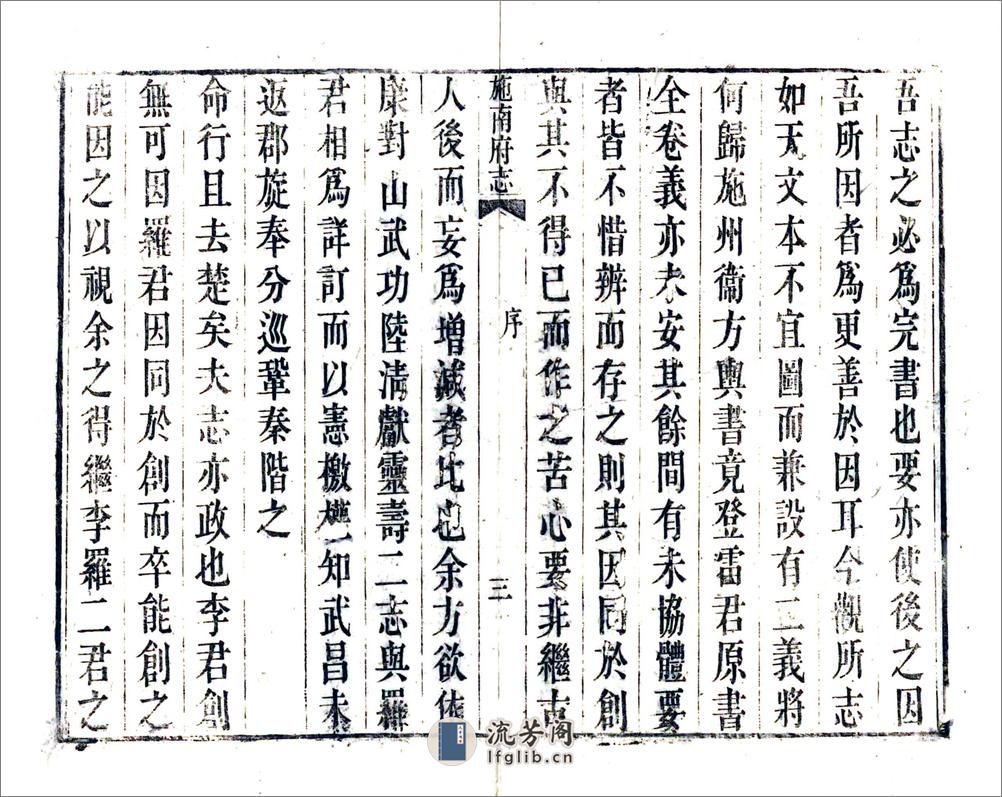 吾志之必爲完書也要亦使後之因
吾所因者爲更善於因耳今觀所志
如天文本不宜圖而兼設有二義將
何歸施州衞方輿書竟登雷君原書
全卷義亦未安其餘間有未協體要
者皆不惜辨而存之則其因同於創
與其不得已而作之苦心要非繼古
施南府志
序
三
人後而妄爲增減者比也余方欲依
康對山武功陸清獻靈壽二志與羅
君相爲詳訂而以憲檄攝知武昌未
返郡旋奉分巡鞏秦階之
命行且去楚矣夫志亦政也李君創
無可因羅君因同於創而卒能創之
能因之以視余之得繼李羅二君之
流芳阁
lfglib.cn